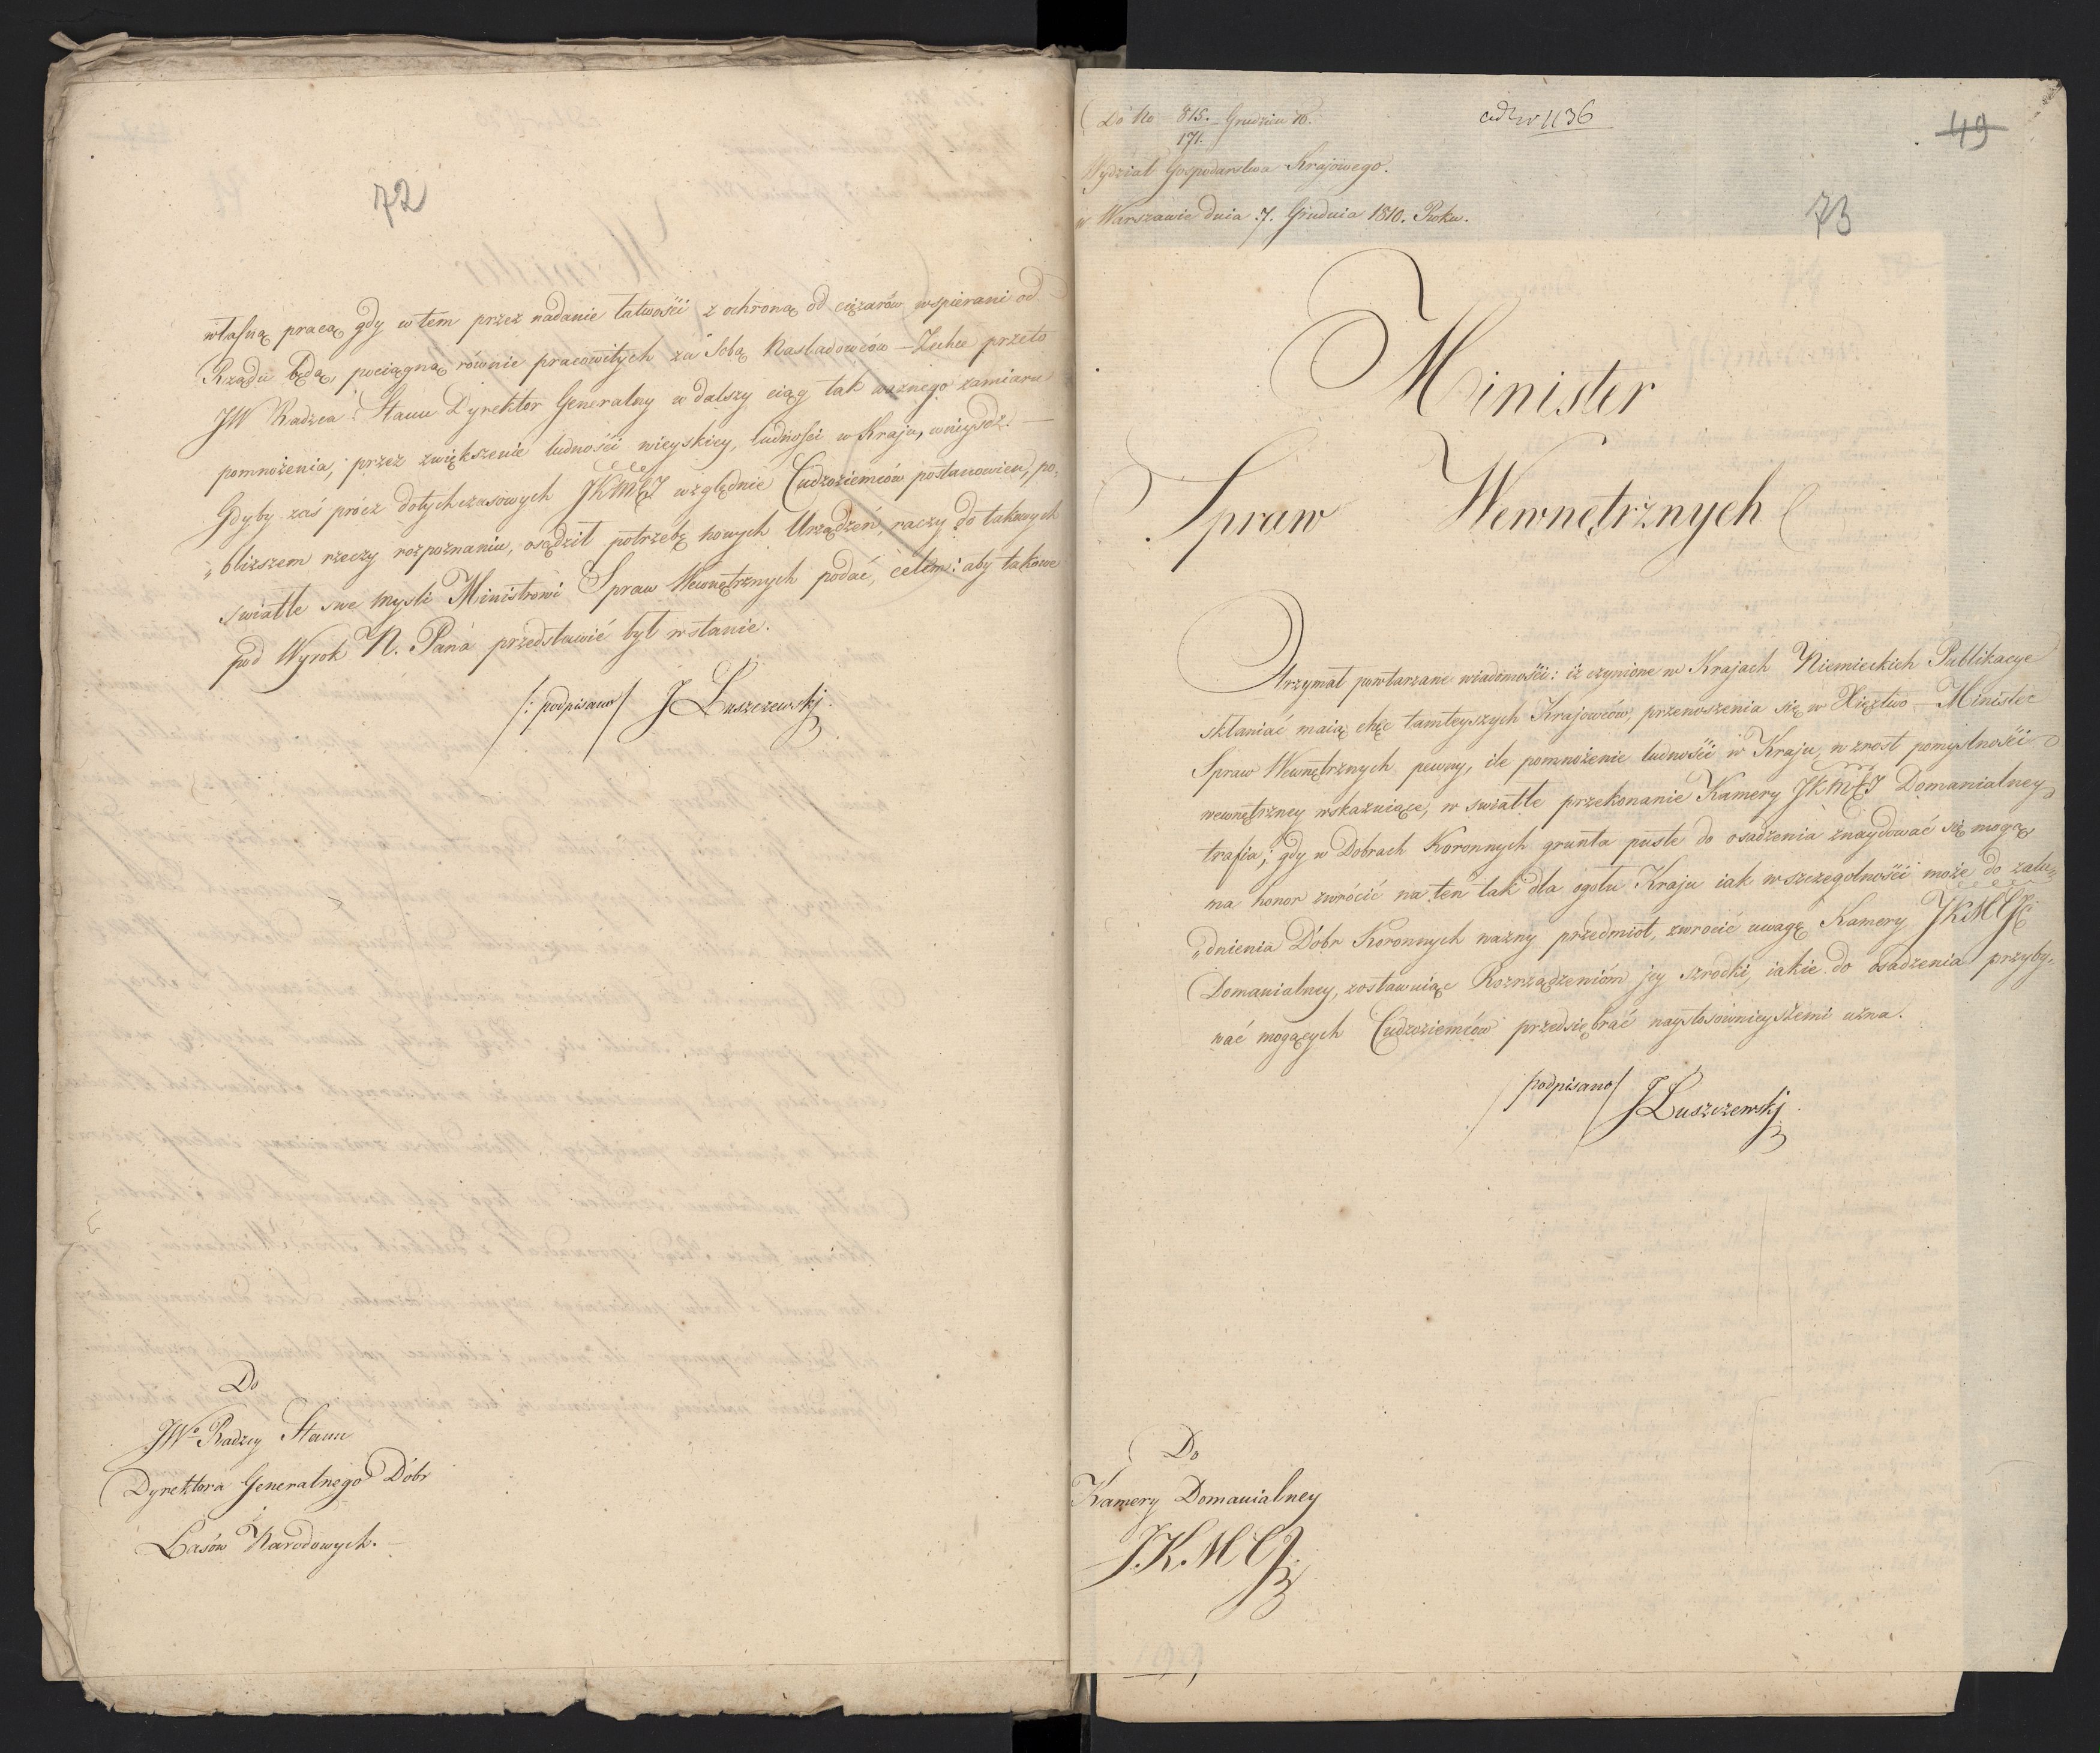 72
własną pracą, gdy w tém przez nadanie łatwości z ochroną od ciężarów wspierani od
Rządu będą, pociągną równie pracowitych za sobą Nasladowców – Zechce przeto
JW Radzca Stanu Dyrektor Generalny w dalszy ciąg tak ważnego zamiaru
pomnożenia, przez zwiększenie ludności wieyskiey, ludności w Kraju, wniyść. –
Gdyby zaś prócz dotychczasowych JKMCJ względnie Cudzoziemców postanowien, po-
„bliższem rzeczy rozpoznaniu, osądził potrzebę nowych Urządzeń, raczy do takowych
swiatłe swe mysli Ministrowi Spraw Wewnętrznych podać, celem: aby takowe
pod Wyrok N. Pana przedstawić był w stanie.
/: podpisano/ J Łuszczewskj
Do
JWº Radzcy Stanu
Dyrektora Generalnego Dóbr
i
Lasów Narodowych. –
Do No 815. Grudnia 10.
171.
ad N 1136
49
Wydział Gospodarstwa Krajowego.
w Warszawie dnia 7. Grudnia 1810. Roku.
73
Minister
Spraw Wewnętrznych
Otrzymał powtarzane wiadomości: iż czynione w Krajach Niemieckich Publikacye
skłaniać maią chęc tamteyszych Krajowców, przenoszenia się w Xięztwo – Minister
Spraw Wewnętrznych pewny, ile pomnożenie ludności w Kraju, wzrost pomyslności
wewnętrzney wskazuiące, w swiatłe przekonanie Kamery JKMCJ Domanialney
trafia; gdy w Dobrach Koronnych grunta puste do osadzenia znaydować się mogą
ma honor zwrócić na ten tak dla ogołu Kraju iak w szczegolności może do zalu-
„dnienia Dóbr Koronnych ważny przedmiot, zwrócić uwagę Kamery JKMCJ
Domanialney, zostawuiąc Rozrządzeniom jey szrodki, iakie do osadzenia przyby-
wać mogących Cudzoziemców przedsiębrać naystosownieyszemi uzna.
/podpisano/ J Łuszczewskj
Do
Kamery Domanialney
J.K.M C J.